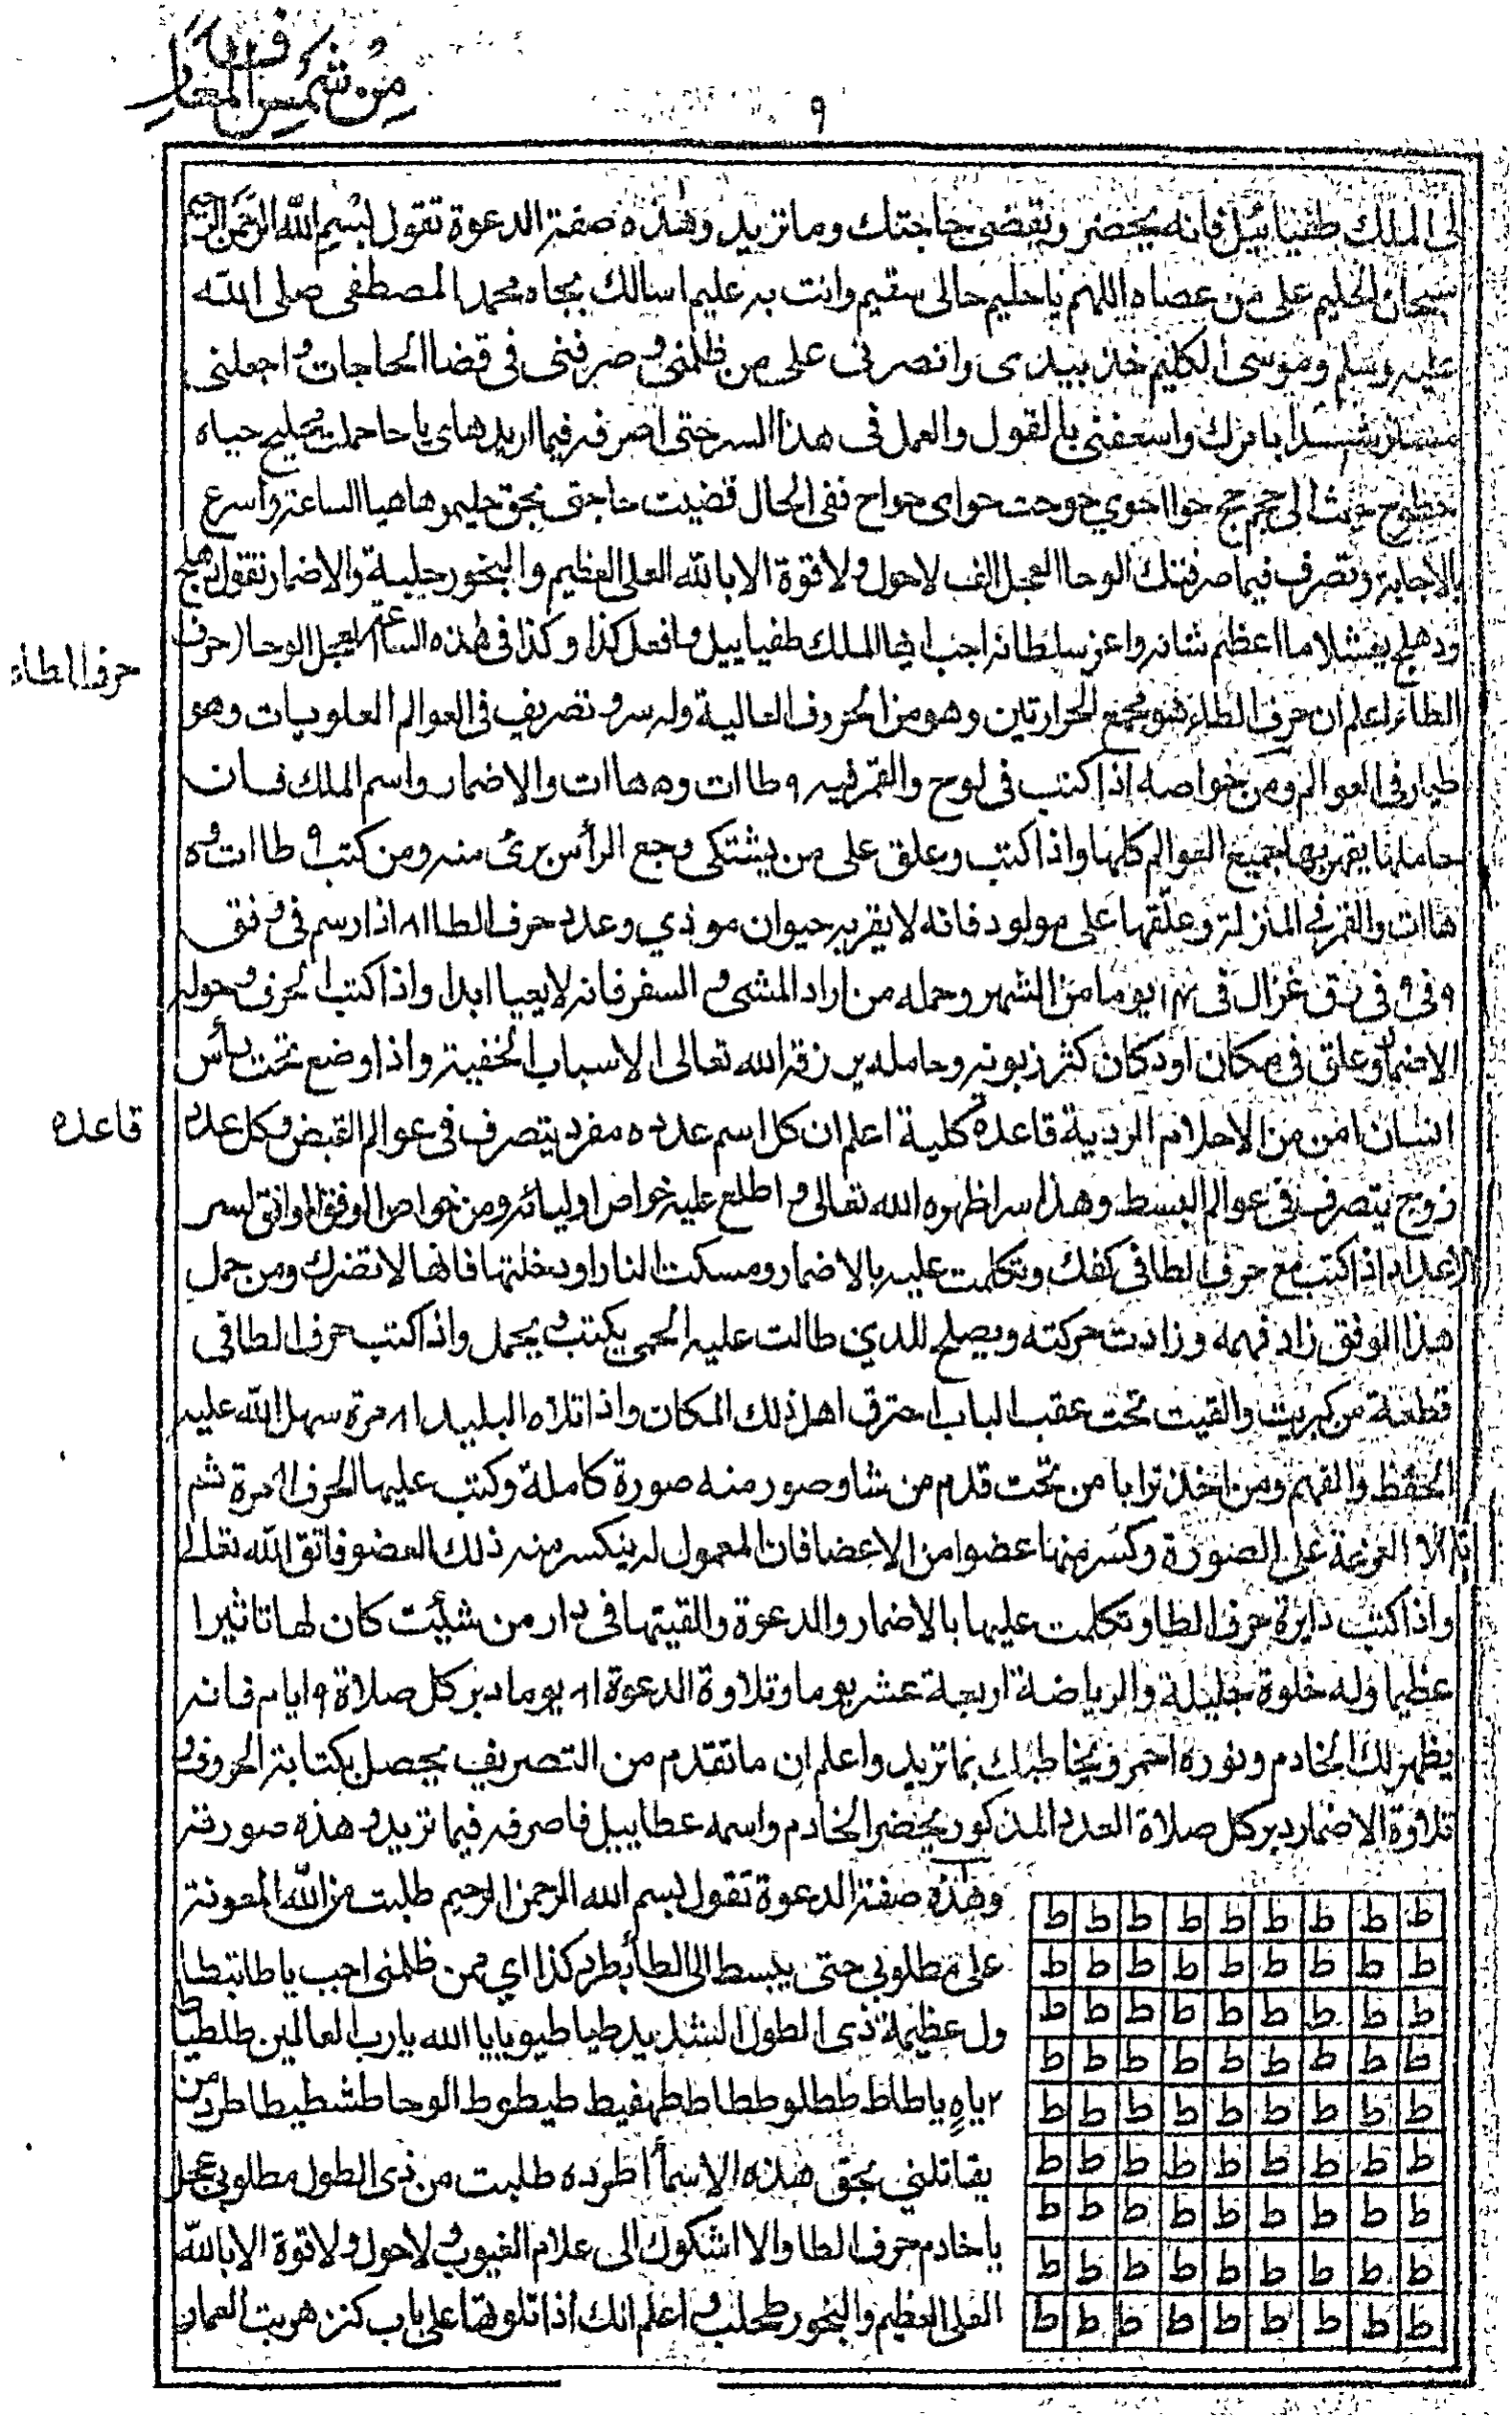 من شمس المعارف
٩
لى الملك طفيائيل فانه يحضر ويقضى حاجتك وما تريد وهذه صفة الدعوة تقول بسم الله الرحمن الرحيم
سبحان الحليم على من عصاه اللهم يا حليم حالى سقيم وانت به عليم اسالك بجاه محمد المصطفى صلى الله
عليه وسلم وموسى الكليم خذ بيدى وانصرنى على من ظلمنى وصرفنى فى قضا الحاجات واجعلنى
بامرك واسعفنى بالقول والعمل فى هذا السر حتى اصرفه فيما اريد هاى يا حا
ففى الحال قضيت حاجتى بحق هيا الساعة واسرع
بالاجابة وتصرف فيما صرفتك الوحا العجل الف لاحول ولاقوة الا بالله العلى العظيم والبخور حلبة والاضمار تقول
ما اعظم شانه واعز سلطانه اجب ايها الملك طفياييل وافعل كذا وكذا فى هذه الساعة العجل الوحا (حرف
حرف الطاء
الطاء) اعلم ان حرف الطاء هو مجمع الحرارتين وهو من الحروف العالية وله سر وتصريف فى العوالم العلويات وهو
طيار فى العوالم ومن خواصه اذا كتب فى لوح والقمر فيه ٩ طاات و٥ هاات والاضمار واسم الملك فان
حاملها يقهر بها جميع العوالم كلها واذا كتب وعلق على من يشتكى وجع الرأس برئ منه ومن كتب ٩ طاات و٥
هاات والقمر فى المنزلة وعلقها على مولود فانه لا يقربه حيوان موذي وعدد حرف الطا ٨١ اذا رسم فى وفق
٩ فى ٩ فى رق غزال فى يوما من الشهر وحمله من اراد المشى و السفر فانه لا يعيا ابدا واذا كتب الحرف وحوله
الاضمار وعلق فى مكان او دكان كثر زبونه وحامله يرزقه الله تعالى الاسباب الخفية واذا وضع تحت رأس
انسان امن من الاحلام الردية قاعدة كلية اعلم ان كل اسم عدده مفرد يتصرف فى عوالم القبض وكل عدد
قاعده
زوج يتصرف فى عوالم البسط وهذا سر اظهره الله تعالى واطلع عليه خواص اوليائه ومن خواص الوفق الموافق لسر
الاعداد اذا كتب مع حرف الطا فى كفك وتكلمت عليه بالاضمار ومسكت النار او دخلتها فانها لا تضرك ومن حمل
هذا الوفق زاد فهمه وزادت حركته ويصلح للذي طالت عليه الحمى يكتب ويحمل واذا كتب حرف الطا فى
قطعة من كبريت والقيت تحت عقب الباب احترق اهل ذلك المكان واذا تلاه البليد ٨١ مرة سهل الله عليه
الحفظ والفهم ومن اخذ ترابا من تحت قدم من شا وصور منه صورة كاملة وكتب عليها الحرف مرة ثم
العزيمة على الصورة وكسر منها عضوا من الاعضا فان المعمول له ينكسر منه ذلك العضو فاتق الله تعالى
واذا كتبت دايرة حرف الطا وتكلمت عليها بالاضمار والدعوة والقيتها فى دار من شئت كان لها تاثيرا
عظيما وله خلوة جليلة والرياضة اربعة عشر يوما وتلاوة الدعوة ٨١ يوما دبر كل صلاة ٩ ايام فانه
يظهر لك الخادم ونوره احمر ويخاطبك بما تريد واعلم ان ما تقدم من التصريف يحصل بكتابة الحروف و
تلاوة الاضمار دبر كل صلاة العدد المذكور يحضر الخادم واسمه عطاييل فاصرفه فيما تريد وهذه صورته
وهذه صفة الدعوة تقول بسم الله الرحمن الرحيم طلبت من الله المعونة
على مطلوبي حتى يبسط الى الطا بطرد كذا اي ممن ظلمنى اجب يا
ول عظيمة ذى الطول الشديد طيا طيو يايا الله يا رب العالمين
٢ ياه يا طيطوط الوحا من
يقاتلني بحق هذه الاسماء اطرده طلبت من ذى الطول مطلوبى عجل
يا خادم حرف الطا والا اشكوك الى علام الغيوب ولاحول ولاقوة الا بالله
العلى العظيم والبخور واعلم انك اذا تلوتها على باب كنز هربت العمار
ط ط ط ط ط ط ط ط ط
ط ط ط ط ط ط ط ط ط
ط ط ط ط ط ط ط ط ط
ط ط ط ط ط ط ط ط ط
ط ط ط ط ط ط ط ط ط
ط ط ط ط ط ط ط ط ط
ط ط ط ط ط ط ط ط ط
ط ط ط ط ط ط ط ط ط
ط ط ط ط ط ط ط ط ط